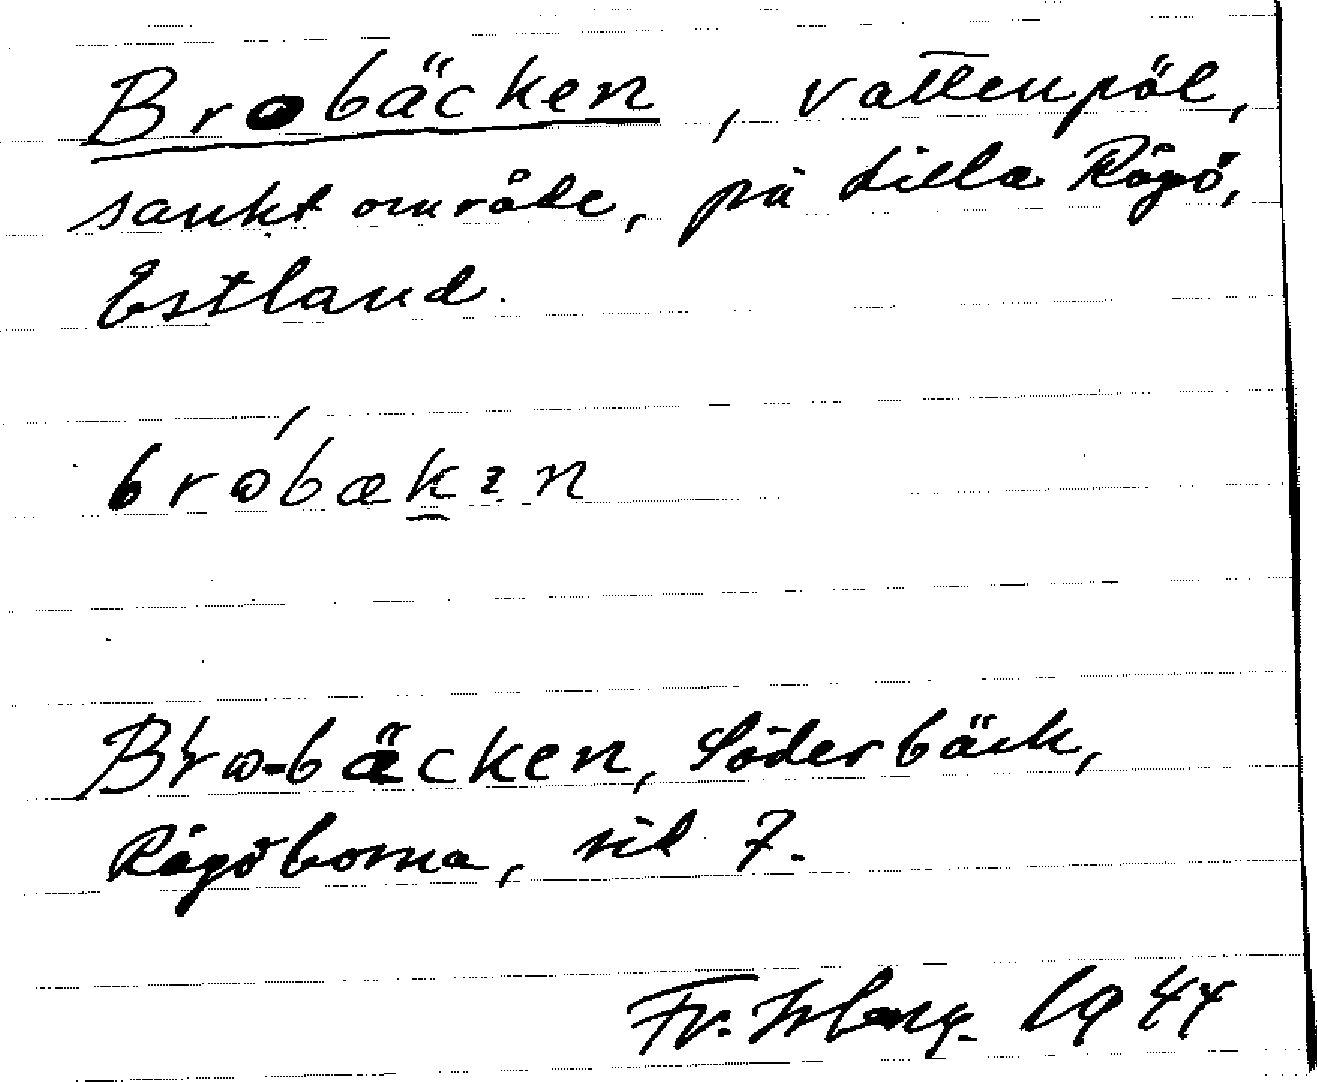 Brobäcken, vattenpöl,
sankt område, på Lilla Rågö,
Estland.
bróbækın
Bro-bäcken, Söderbäck,
Rågöborna, sid 7.
Fr. 1944